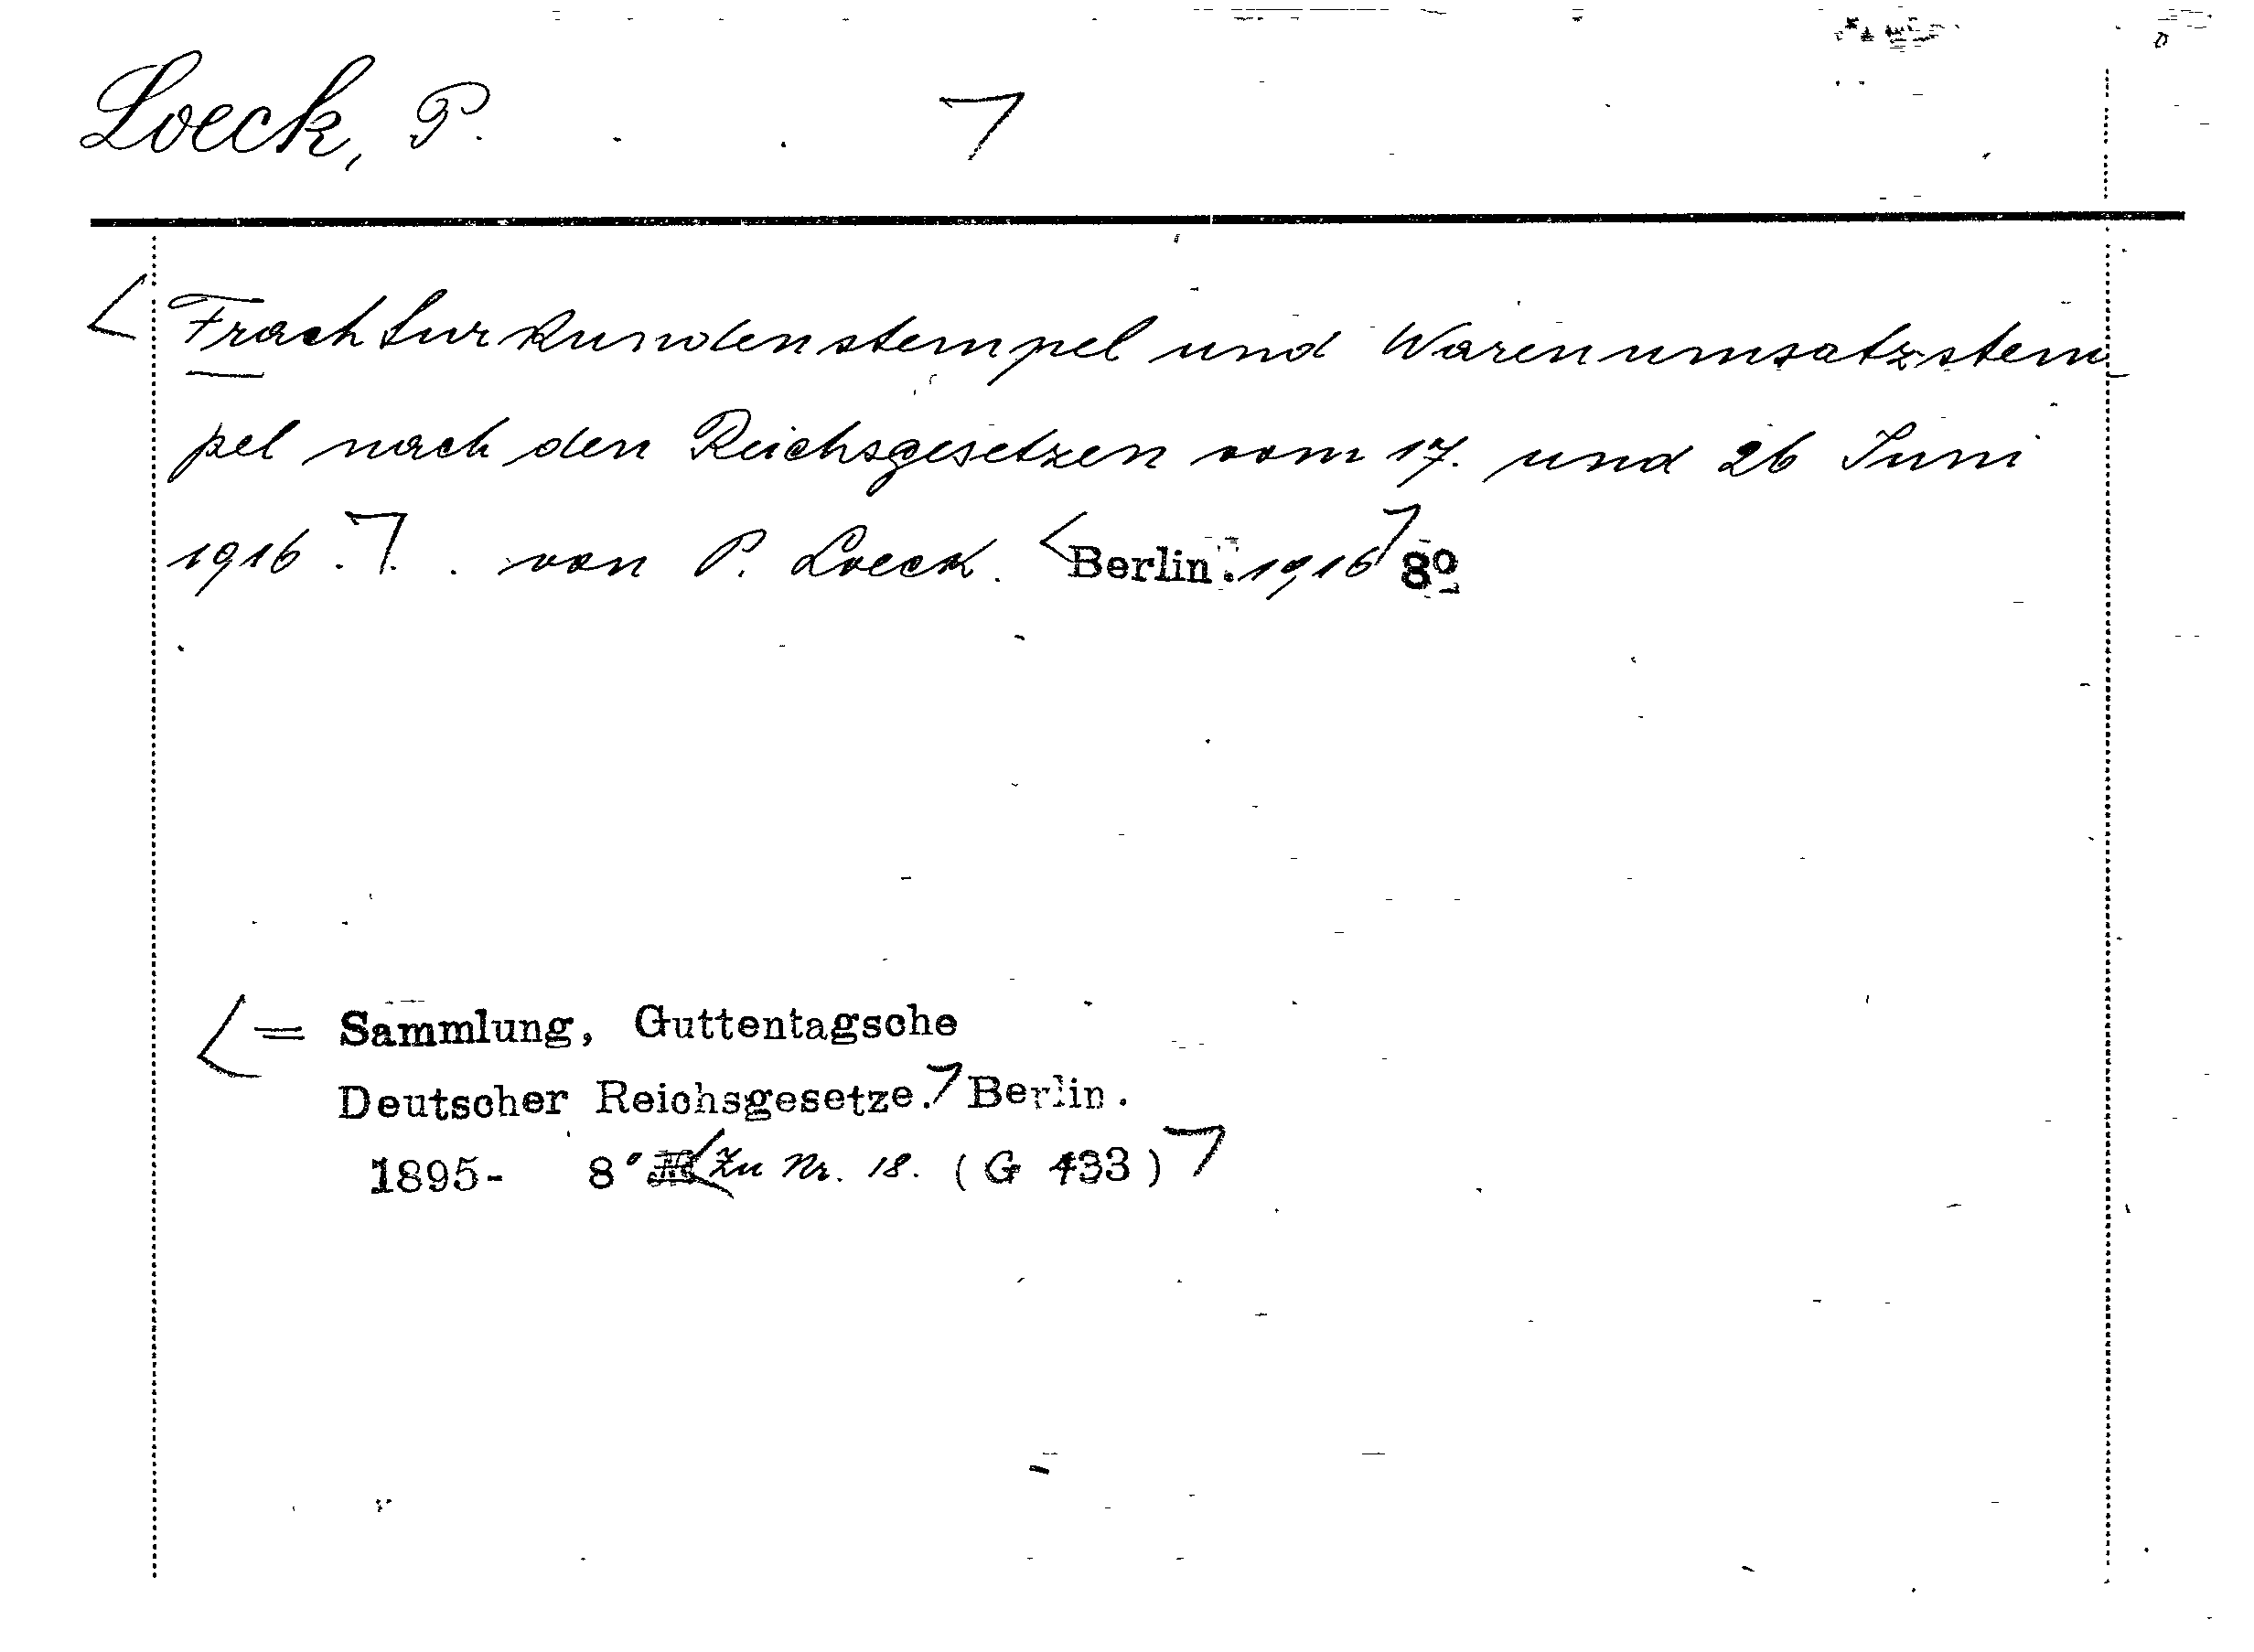 Loeck, P.
Frachturkundenstempel und Warenumsatzstem-
pel nach den Reichsgesetzen vom 17. und 26 Juni
1916 . . . von P. Loeck. Berlin: 1916 8º
= Sammlung, Guttentagsche
Deutscher Reichsgesetze. Berlin.
1895- 8° Zu Nr. 18. (G 433)